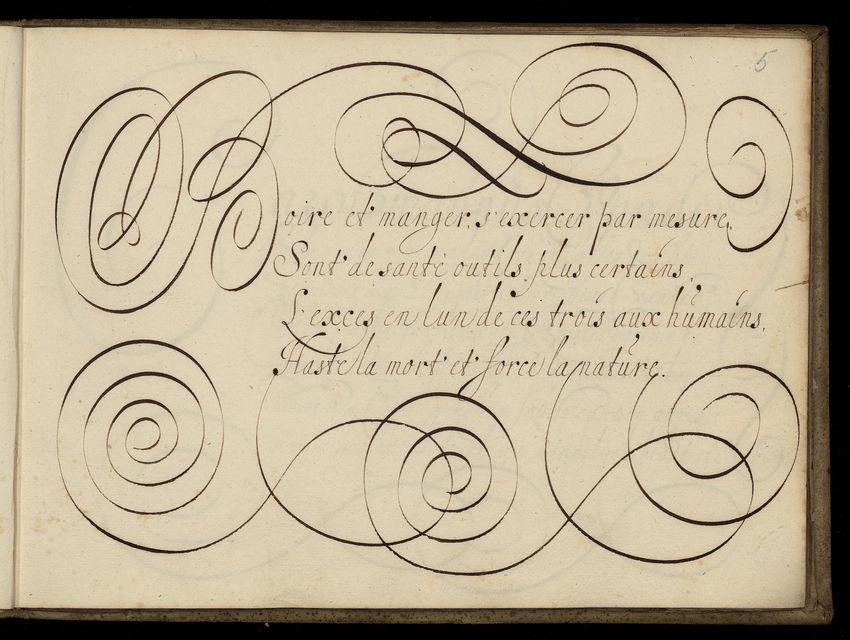 5
Boire et manger, s'exercer par mesure,
Sont de santé outils plus certains,
L'exces en lun de ces trois aux humains,
Haste la mort et force la nature.